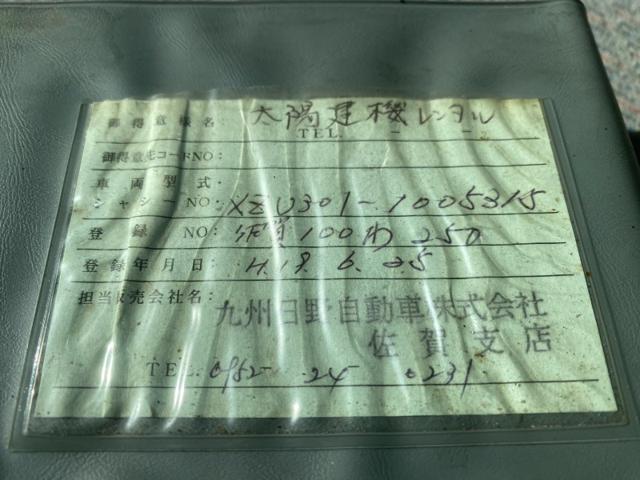 御得意様名 太陽建機レンタル
TEL. － －
御得意先コードNO:
車両型式・
シャシーNO: XZU301-1005315
登録NO: 佐賀100わ250
登録年月日: H.18.6.25
担当販売会社名: 九州日野自動車株式会社
佐賀支店
TEL. 0952 24 0231